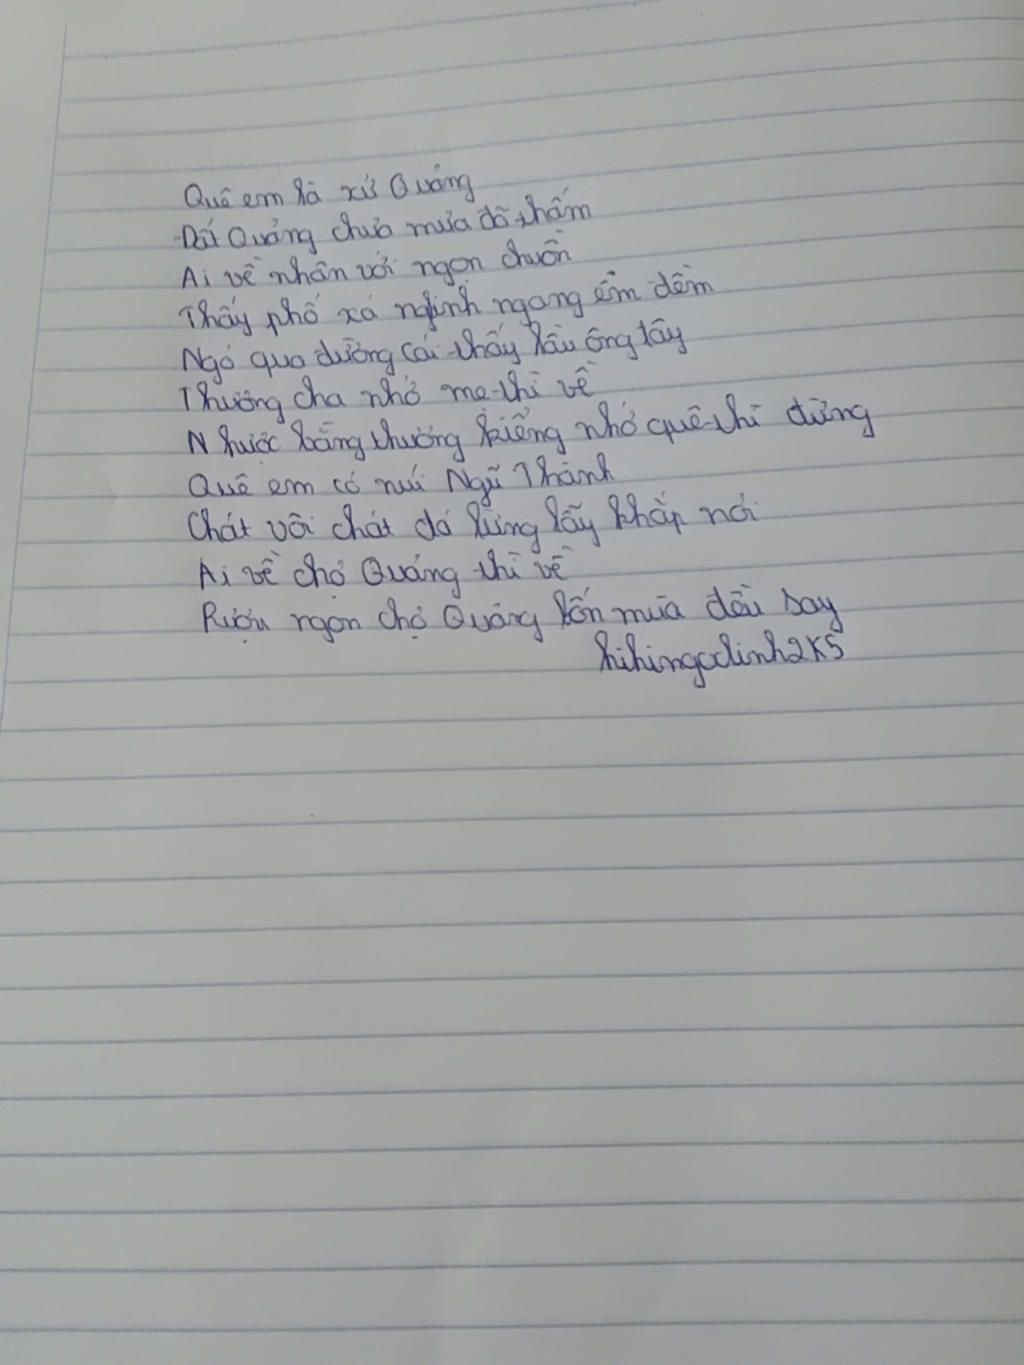 Quê em là xứ Quảng
Đất Quảng chưa mưa đã thấm
Ai về nhắn với ngọn chuồn
Thấy phố xá nghinh ngang êm đềm
Ngó qua đường cái thấy lầu ông tây
Thương cha nhớ mẹ thì về
Nhược bằng thương kiểng nhớ quê thì đừng
Quê em có núi Ngũ Thành
Chát với chát đá lừng lẫy khắp nơi
Ai về chợ Quảng thì về
Rượu ngon chợ Quảng lốn mùa đều say
hihingodinh2K5